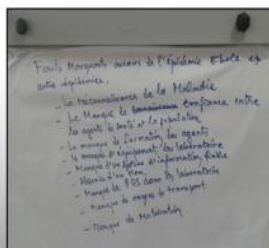 Points Marquants autours de l'épidémie Ebola et
autre épidemies.
- La méconnaissance de la Maladie
- Le Manque de confiance entre
les agents de santé et la population
- Le manque de formation des agents
- Le manque d'équipement du laboratoire
- Manque d'un système d'information fiable
- Absence d'un
- Manque de dans les laboratoire
- Manque de moyens de transport
- Manque de Motivation